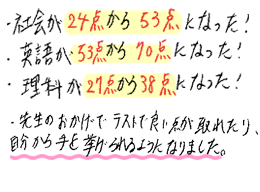 ・社会が24点から53点になった！
・英語が53点から70点になった！
・理科が27点から38点になった！
・先生のおかげでテストで良い点が取れたり、
自分から手を挙げられるようになりました。